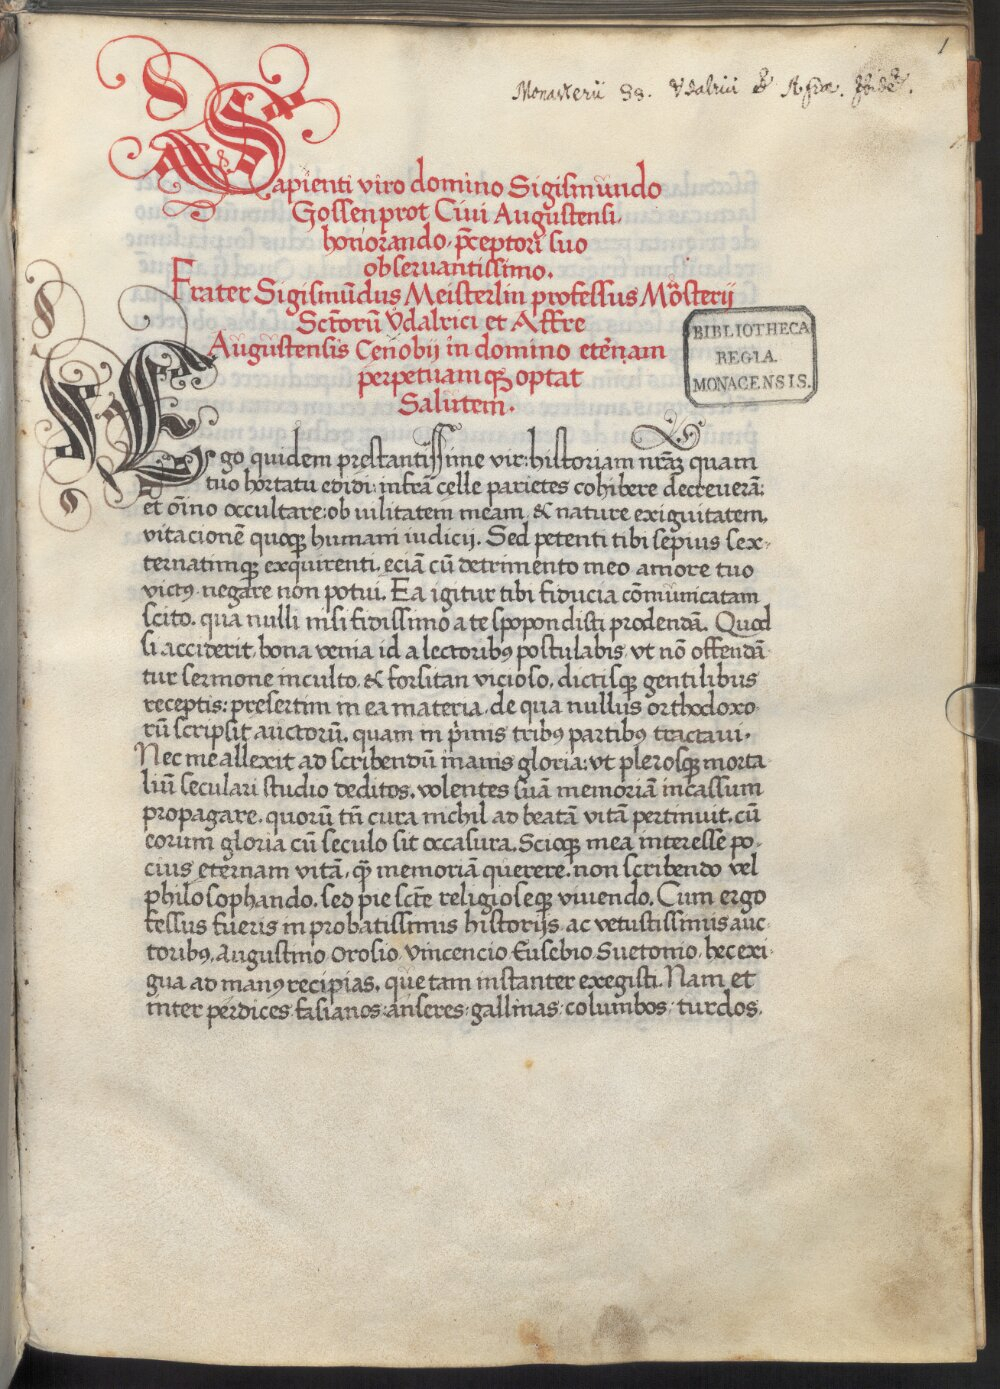 1
Monasterii SS. Vdalrici & Afræ
Sapienti viro domino Sigismundo
Gossenprot Ciui Augustensi.
honorando. p̄ceptori suo
obseruantissimo.
Frater Sigismūdus Meisterlin professus Mōsterii
Sctōrū Vdalrici et Affre
Augustensis Cenobij in domino etērnam
perpetuam qꝫ optat
Salutem.
BIBLIOTHECA
REGIA
MONACENSIS.
Ego quidem prestantissime vir: historiam nrāꝫ quam
tuo hortatu edidi: infra celle parietes cohibere decreuerā:
et oīno occultare: ob uilitatem meam, & nature exiguitatem,
vitacionē quoqꝫ humani iudicij. Sed petenti tibi sepius sex-
ternatimqꝫ exquirenti, eciā cū detrimento meo amore tuo
victꝰ negare non potui. Ea igitur tibi fiducia cōmunicatam
scito. qua nulli nisi fidissimo a te spopondisti prodendā. Quod
si acciderit, bona venia id a lectoribꝰ postulabis, vt nō offendā
tur sermone inculto, & forsitan vicioso, dictisqꝫ gentilibus
receptis: presertim in ea materia, de qua nullus orthodoxo
rū scripsit auctorū. quam in p̄mis tribꝰ partibꝰ tractaui.
Nec me allexit ad scribendū inanis gloria: vt plerosqꝫ morta
liū seculari studio deditos, volentes suā memoriā incassum
propagare. quorū tn̄ cura nichil ad beatā vitā pertinuit, cū
eorum gloria cū seculo sit occasura. Scioqꝫ mea interesse po
cius eternam vitā, qꝫ̄ memoriā querere. non scribendo vel
philosophando. sed pie scte religioseqꝫ viuendo. Cum ergo
fessus fueris in probatissimis historijs ac vetustissimis auc
toribꝰ, Augustino Orosio Vincencio Eusebio Suetonio. hec exi
gua ad manꝰ recipias, que tam instanter exegisti. Nam et
inter perdices fasianos anseres gallinas columbos turdos.